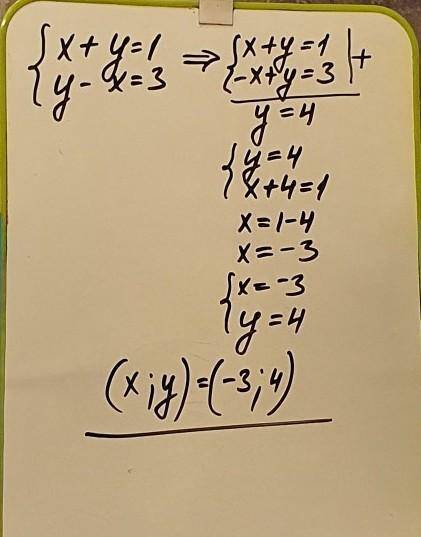 {x+y=1 ⇒ {x+y=1 |+
{y-x=3 {-x+y=3
y=4
{y=4
{x+4=1
x=1-4
x=-3
{x=-3
{y=4
(x;y)=(-3;4)